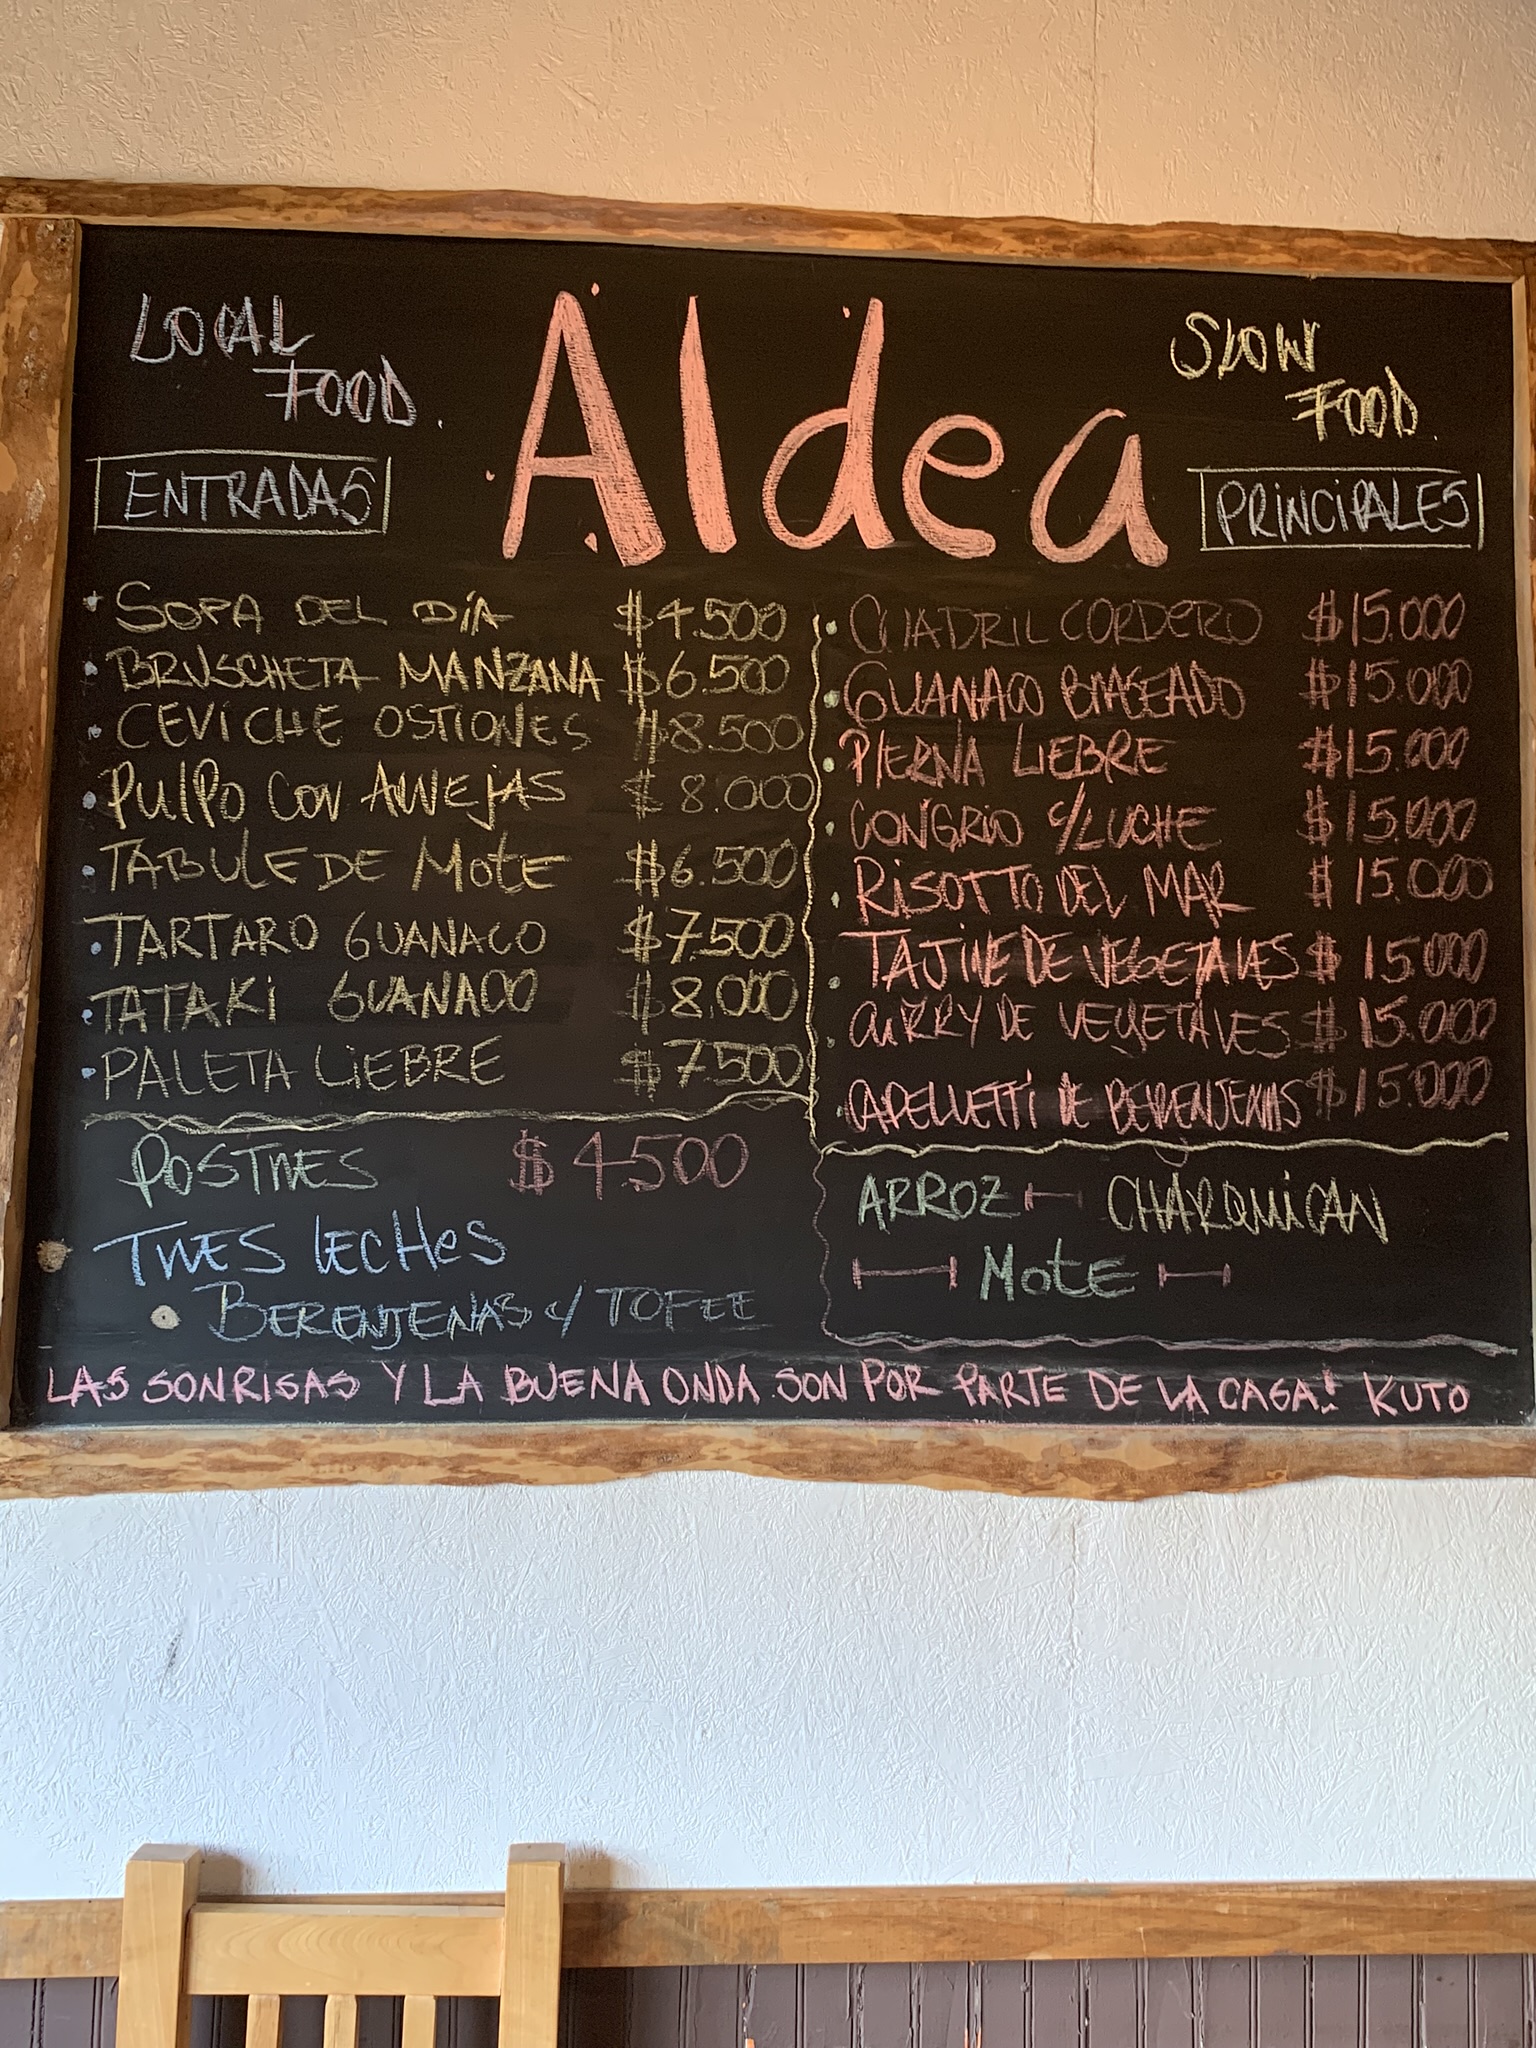 LOCAL
FOOD.
Aldea
SLOW
FOOD.
ENTRADAS
SOPA DEL DÍA $4.500
BRUSCHETA MANZANA $6.500
CEVICHE OSTIONES $8.500
PULPO CON ALVEJAS $8.000
TABULE DE MOTE $6.500
TARTARO GUANACO $7.500
TATAKI GUANACO $8.000
PALETA LIEBRE $7.500
POSTRES $4.500
TRES LECHES
BERENJENAS c/ TOFEE
PRINCIPALES
CUADRIL CORDERO $15.000
GUANACO BRASEADO $15.000
PIERNA LIEBRE $15.000
CONGRIO c/LUCHE $15.000
RISOTTO DEL MAR $15.000
TAJINE DE VEGETALES $15.000
CURRY DE VEGETALES $15.000
CAPELLETTI DE BERENJENAS $15.000
ARROZ - CHARQUICAN
- MOTE -
LAS SONRISAS Y LA BUENA ONDA SON POR PARTE DE LA CASA! KUTO